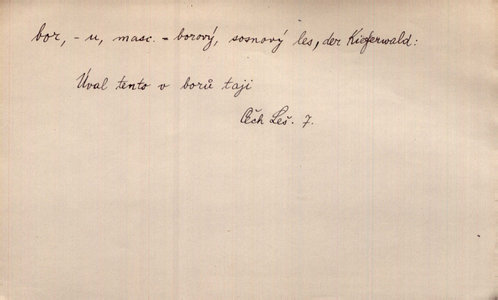 bor, - u, masc. = borový, sosnový les, der Kieferwald:
Úval tento v borů taji
Čech Leš. 7.